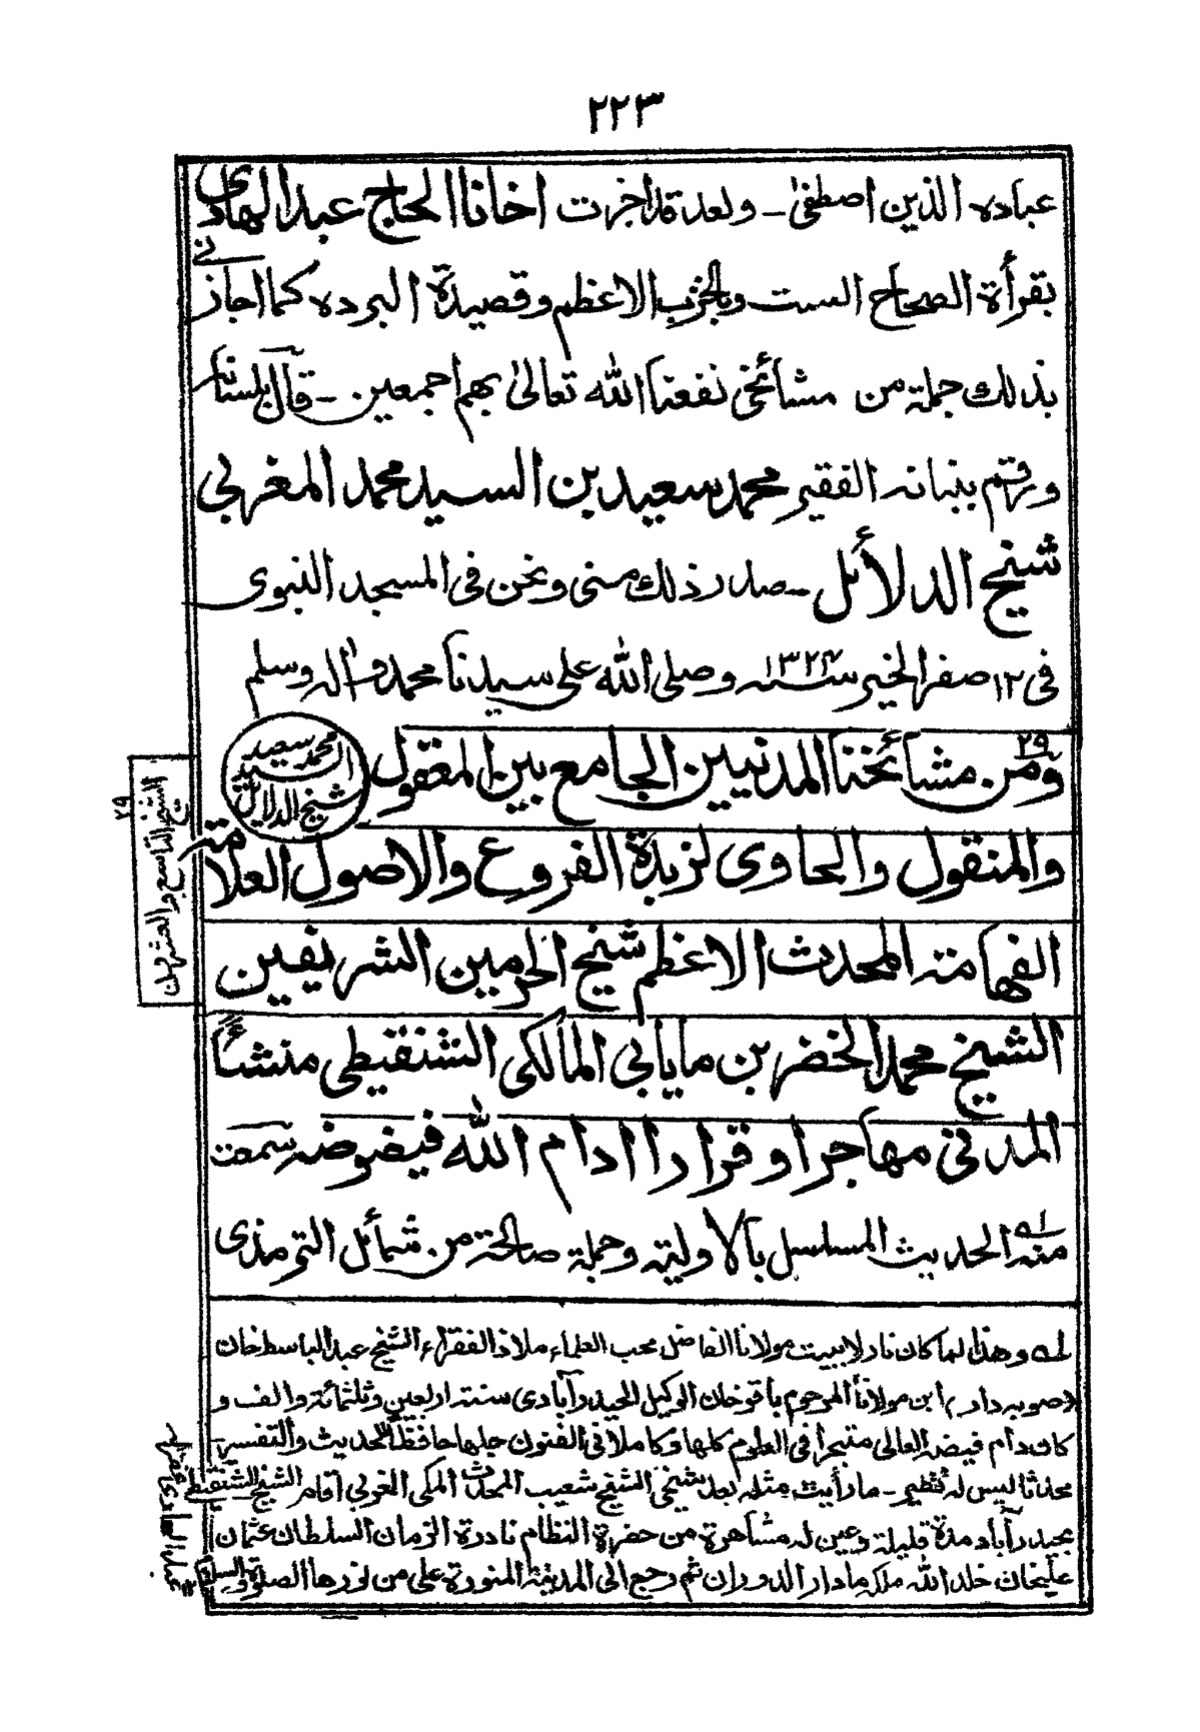 ٢٢٣
عباده الذين اصطفى ـ وبعد قد اجزت اخانا الحاج عبد الهادى
بقرأة الصحاح الست وبالحزب الاعظم وقصيدة البردہ كما اجازنى
بذلك جملة من مشائخى نفعنا الله تعالىٰ بهم اجمعين ـ قال بلسانه
ورقم ببنانه الفقير محمد سعيد بن السيد محمد المغربى
شيخ الدلائل ـ صدر ذلك منى ونحن فى المسجد النبوى
فى ١٢ صفر الخير سنه ١٣٢٤ وصلى الله على سيدنا محمد واله وسلم
محمد سعيد
السيد
شيخ الدلائل
٢٩
ومن مشائخنا المدنيين الجامع بين المعقول
والمنقول والحاوى لزبدة الفروع والاصول العلامة
الفهامة المحدث الاعظم شيخ الحرمين الشريفين
الشيخ محمد الخضر بن مايابى المالكى الشنقيطى منشأً
المدنى مهاجرا وقرارا ادام الله فيوضه سمعت
منه الحديث المسلسل بالاولية وجملة صالحة من شمائل الترمذى
٢٩
الشيخ التاسع والعشرون
له وهذا لما كان نازلا ببيت مولانا الفاضل محب العلماء ملاذ الفقراء الشيخ عبد الباسط خان
(صوبه دار) ابن مولانا المرحوم ياقوخان الوكيل الحيدرآبادى سنة اربعين وثلثمائة والف و
كان دام فيضه العالى متبحرا فى العلوم كلها وكاملا فى الفنون جلها حافظا للحديث والتفسير
محدثا ليس له نظير ـ ما رأيت مثله بعد شيخى الشيخ شعيب المحدث المكى المغربى اقام الشيخ الشنقيطى
بحيدرآباد مدة قليلة وعين له مشاهرة من حضرة النظام نادرة الزمان السلطان عثمان
عليخان خلد الله ملكه مادار الدوران ثم رجع الى المدينة المنورة على من نورها الصلوة والسلام
عبد الهادى